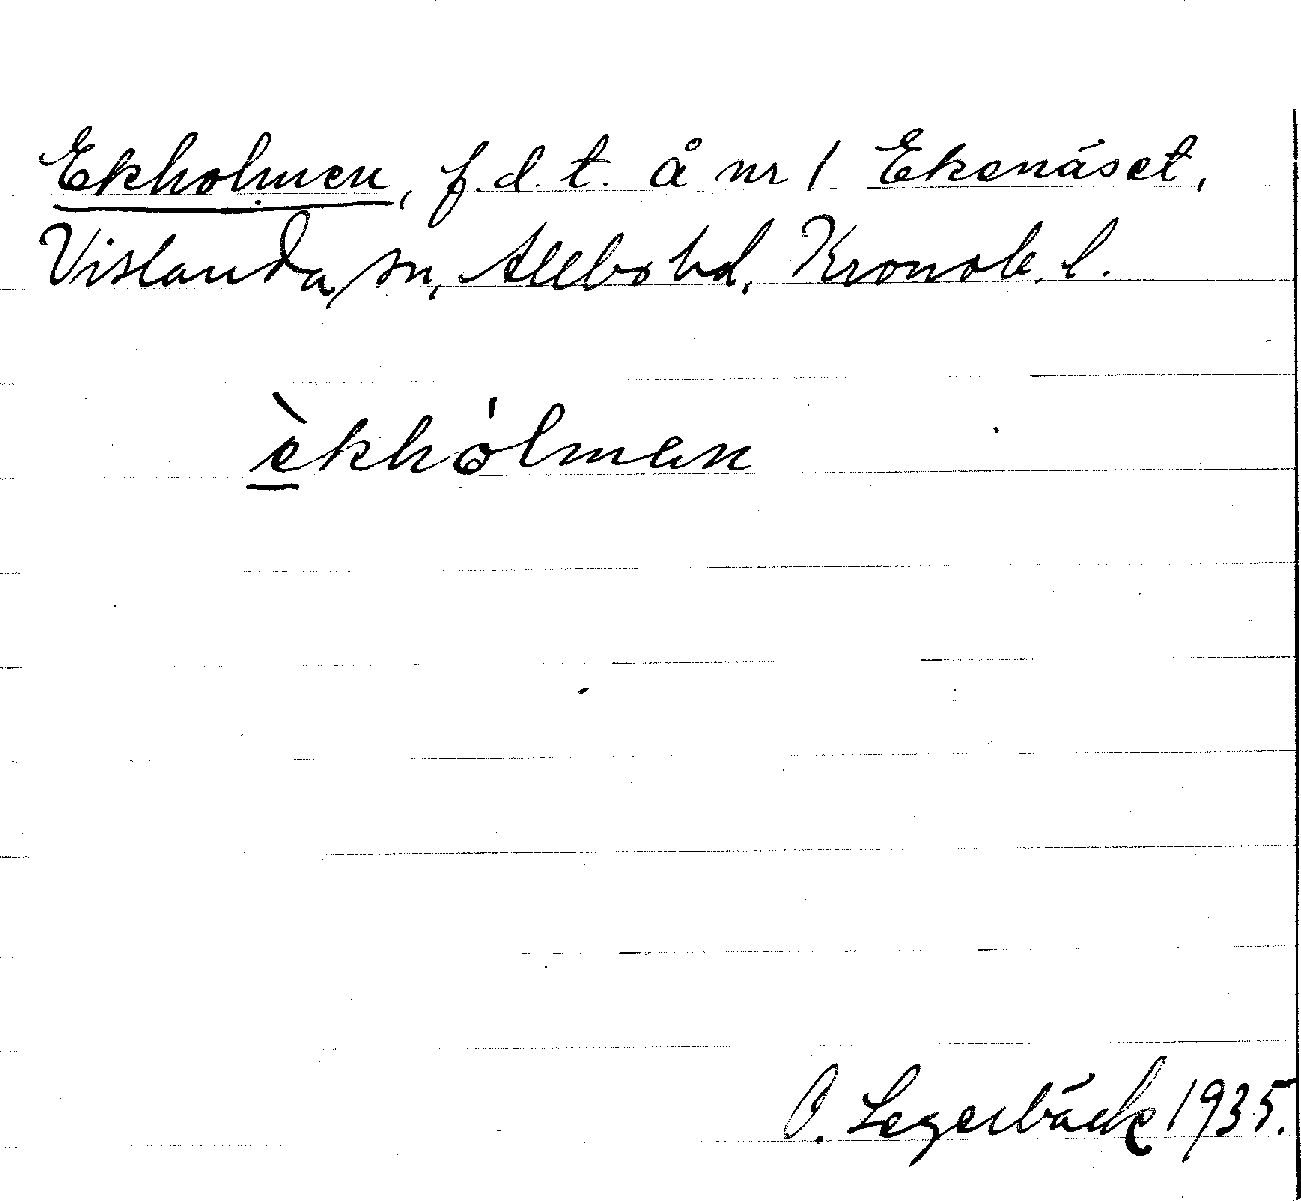 Ekholmen, f.d.t. å nr 1 Ekenäset,
Vislanda sn, Allbo hd, Kronob. l.
èkhólman
O. Legerbäck 1935.